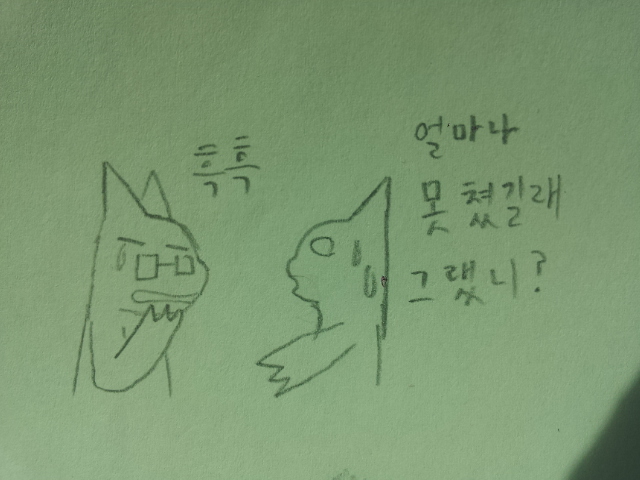 흑흑
얼마나
못 쳤길래
그랬니?